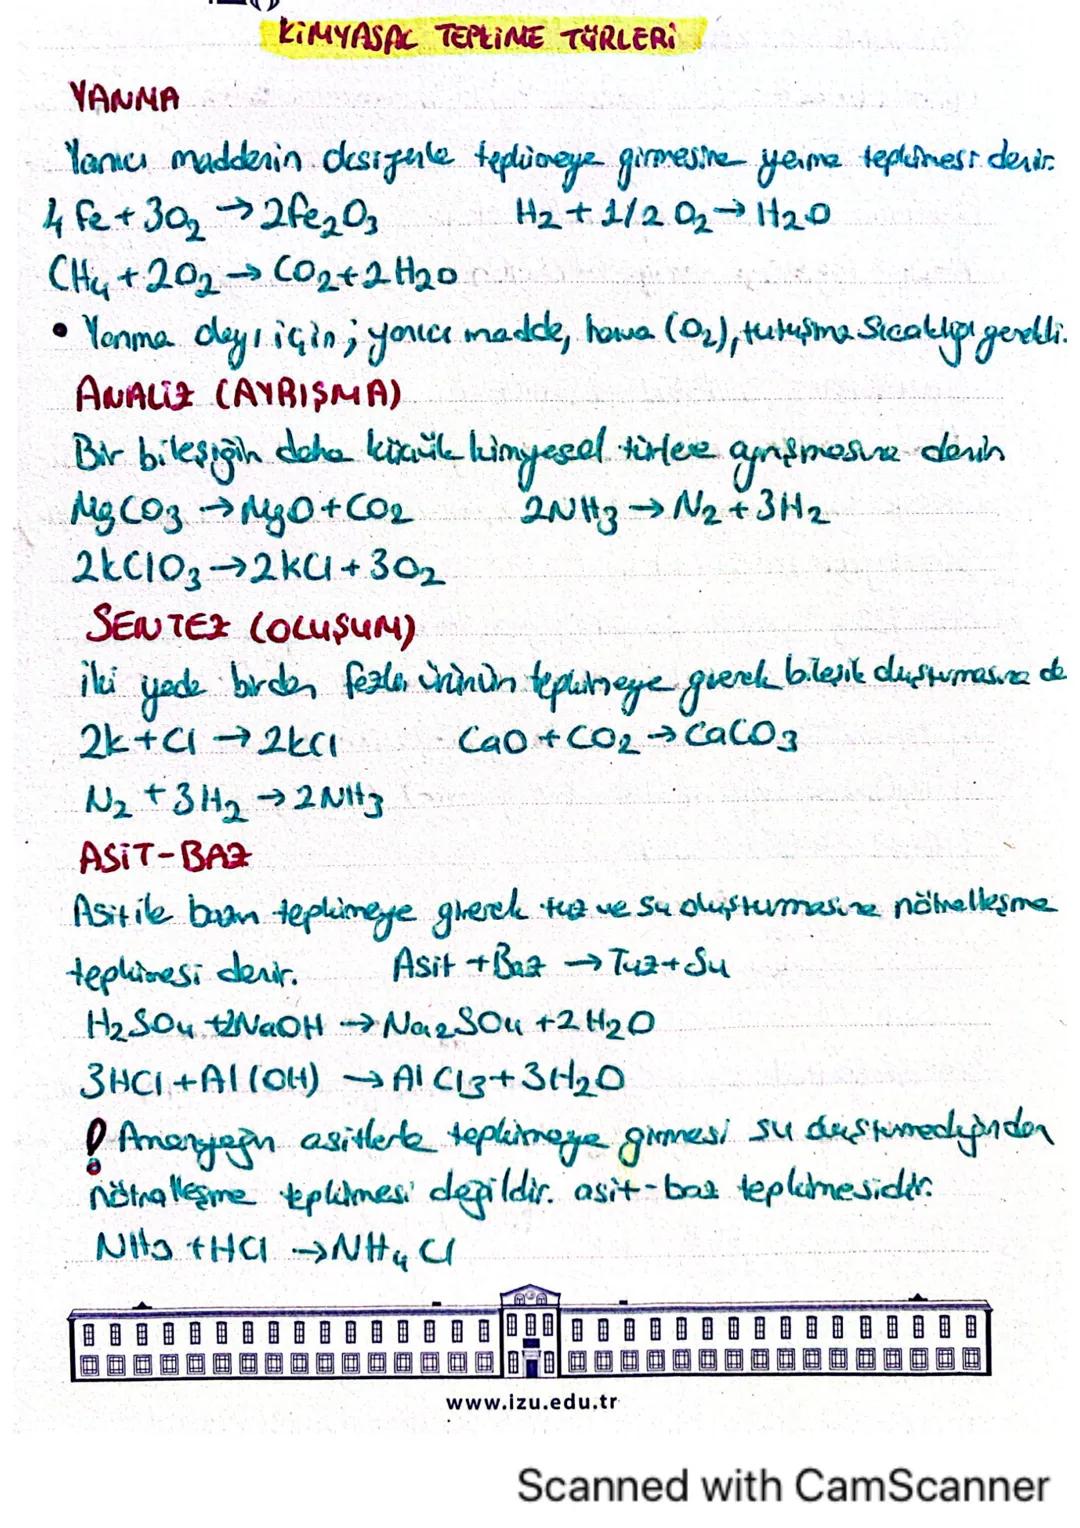 KİMYASAL TEPKİME TÜRLERİ
YANMA
Yanıcı maddenin oksijenle tepkimeye girmesine yanma tepkimesi denir.
4 Fe + 3O₂ → 2Fe₂O₃ H₂ + 1/2 O₂ → H₂O
CH₄ + 2O₂ → CO₂ + 2H₂O
• Yanma olayı için; yanıcı madde, hava (O₂), tutuşma sıcaklığı gerekli.
ANALİZ (AYRIŞMA)
Bir bileşiğin daha küçük kimyasal türlere ayrışmasına denir
MgCO₃ → MgO + CO₂ 2NH₃ → N₂ + 3H₂
2KClO₃ → 2KCl + 3O₂
SENTEZ (OLUŞUM)
iki yada birden fazla ürünün tepkimeye girerek bileşik oluşturmasına de
2K + Cl → 2KCl CaO + CO₂ → CaCO₃
N₂ + 3H₂ → 2NH₃
ASİT-BAZ
Asit ile bazın tepkimeye girerek tuz ve su oluşturmasına nötralleşme
tepkimesi denir. Asit + Baz → Tuz + Su
H₂SO₄ + 2NaOH → Na₂SO₄ + 2H₂O
3HCl + Al(OH) → AlCl₃ + 3H₂O
! Amonyağın asitlerle tepkimeye girmesi su oluşturmadığından
nötralleşme tepkimesi değildir. asit-baz tepkimesidir.
NH₃ + HCl → NH₄Cl
www.izu.edu.tr
Scanned with CamScanner